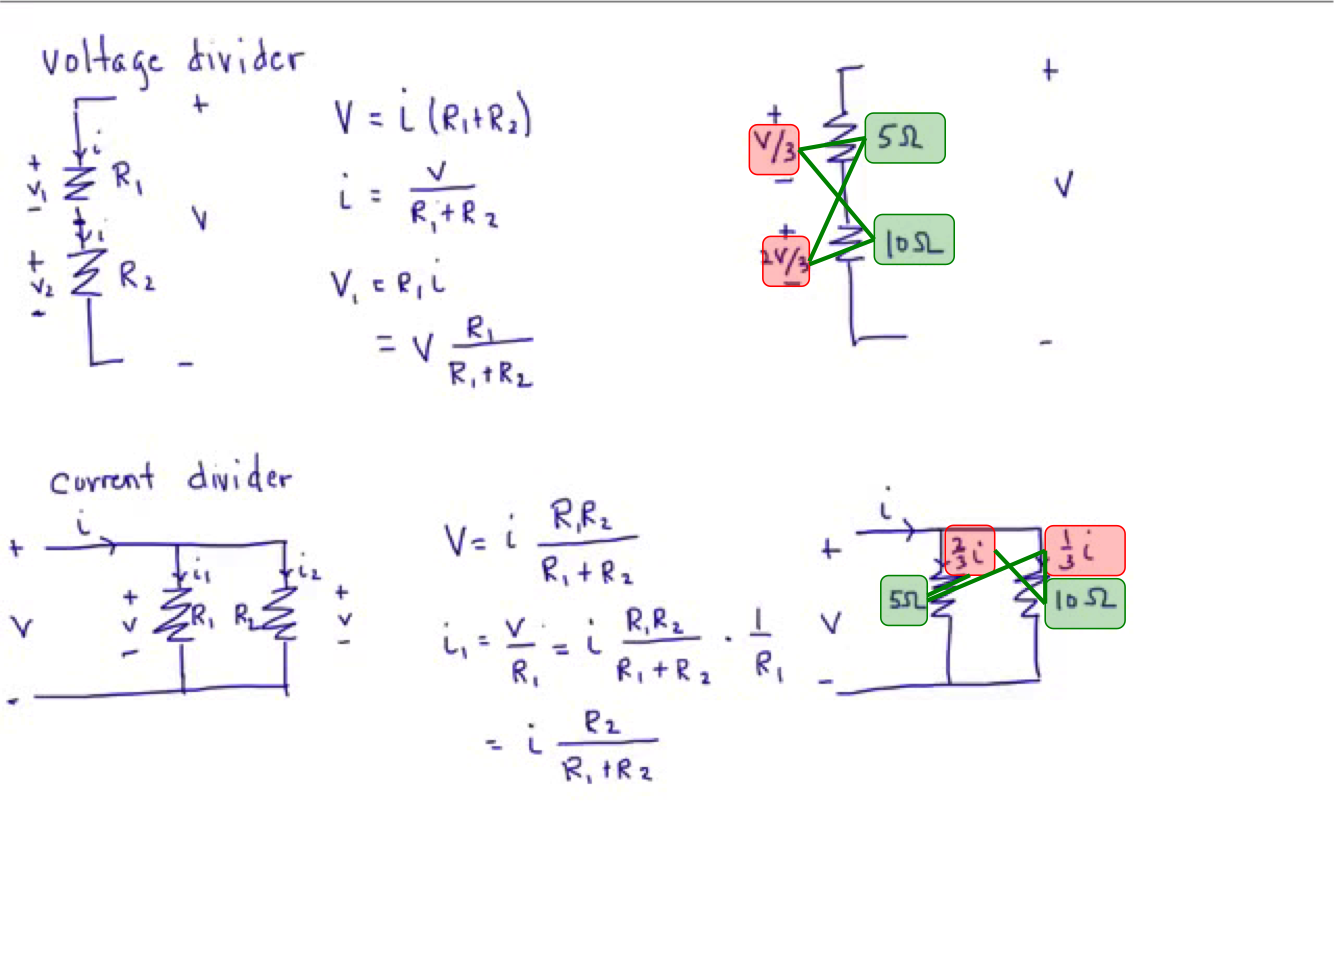 voltage divider
+
i
+
V₁
-
R₁
V
i
+
V₂
-
R₂
-
V = i (R₁+R₂)
i = V / (R₁+R₂)
V₁ = R₁ i
= V R₁ / (R₁+R₂)
+
+
V/3
-
5Ω
V
+
2V/3
-
10Ω
-
current divider
i
+
i₁
i₂
+
V
-
R₁
R₂
+
V
-
V
-
V = i R₁R₂ / (R₁+R₂)
i₁ = V / R₁ = i R₁R₂ / (R₁+R₂) · 1 / R₁
= i R₂ / (R₁+R₂)
i
+
2/3 i
1/3 i
5Ω
10Ω
V
-